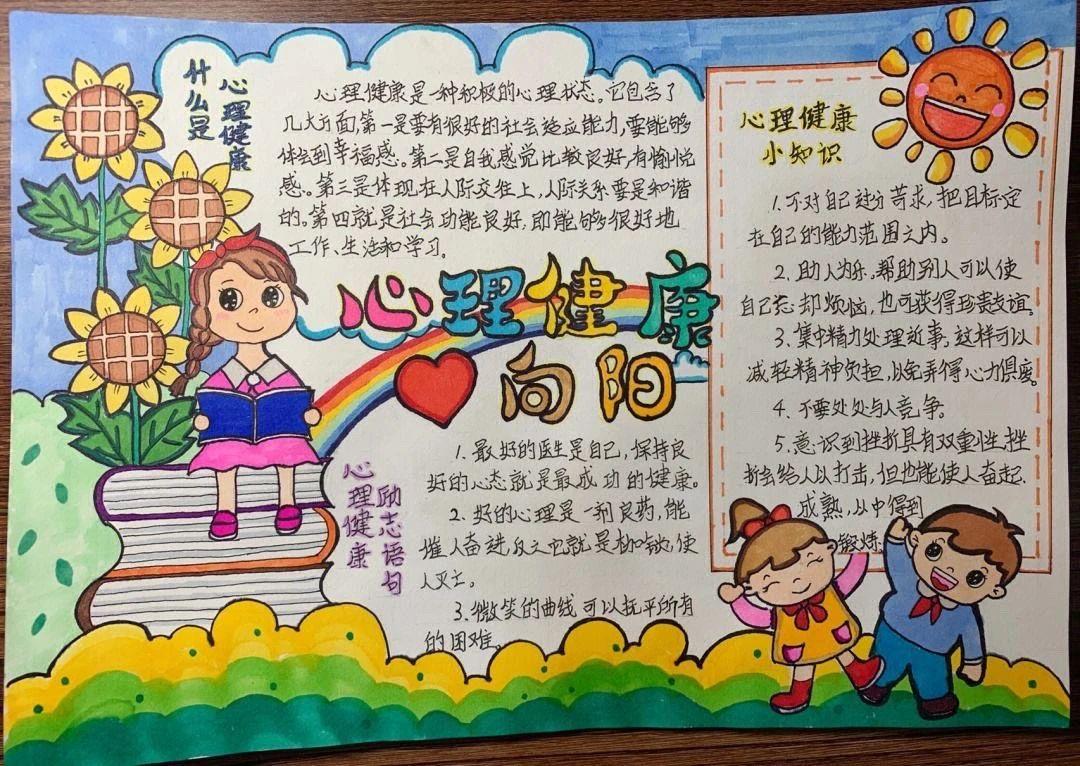 什么是
心理健康
心理健康是一种积极的心理状态。它包含了
几大方面,第一是要有很好的社会适应能力,要能够
体会到幸福感。第二是自我感觉比较良好,有愉悦
感。第三是体现在人际交往上,人际关系要是和谐
的。第四就是社会功能良好,即能够很好地
工作、生活和学习。
心理健康
向阳
心理健康
小知识
1.不对自己过分苛求,把目标定
在自己的能力范围之内。
2.助人为乐,帮助别人可以使
自己忘却烦恼,也可获得珍贵友谊。
3.集中精力处理近事,这样可以
减轻精神负担,以免弄得心力俱疲。
4.不要处处与人竞争。
5.意识到挫折具有双重性,挫
折会给人以打击,但也能使人奋起、
成熟,从中得到
锻炼.
心理健康
励志语句
1.最好的医生是自己,保持良
好的心态就是最成功的健康。
2.好的心理是一剂良药,能
催人奋进,反之它就是枷锁,使
人灭亡。
3.微笑的曲线可以抚平所有
的困难。